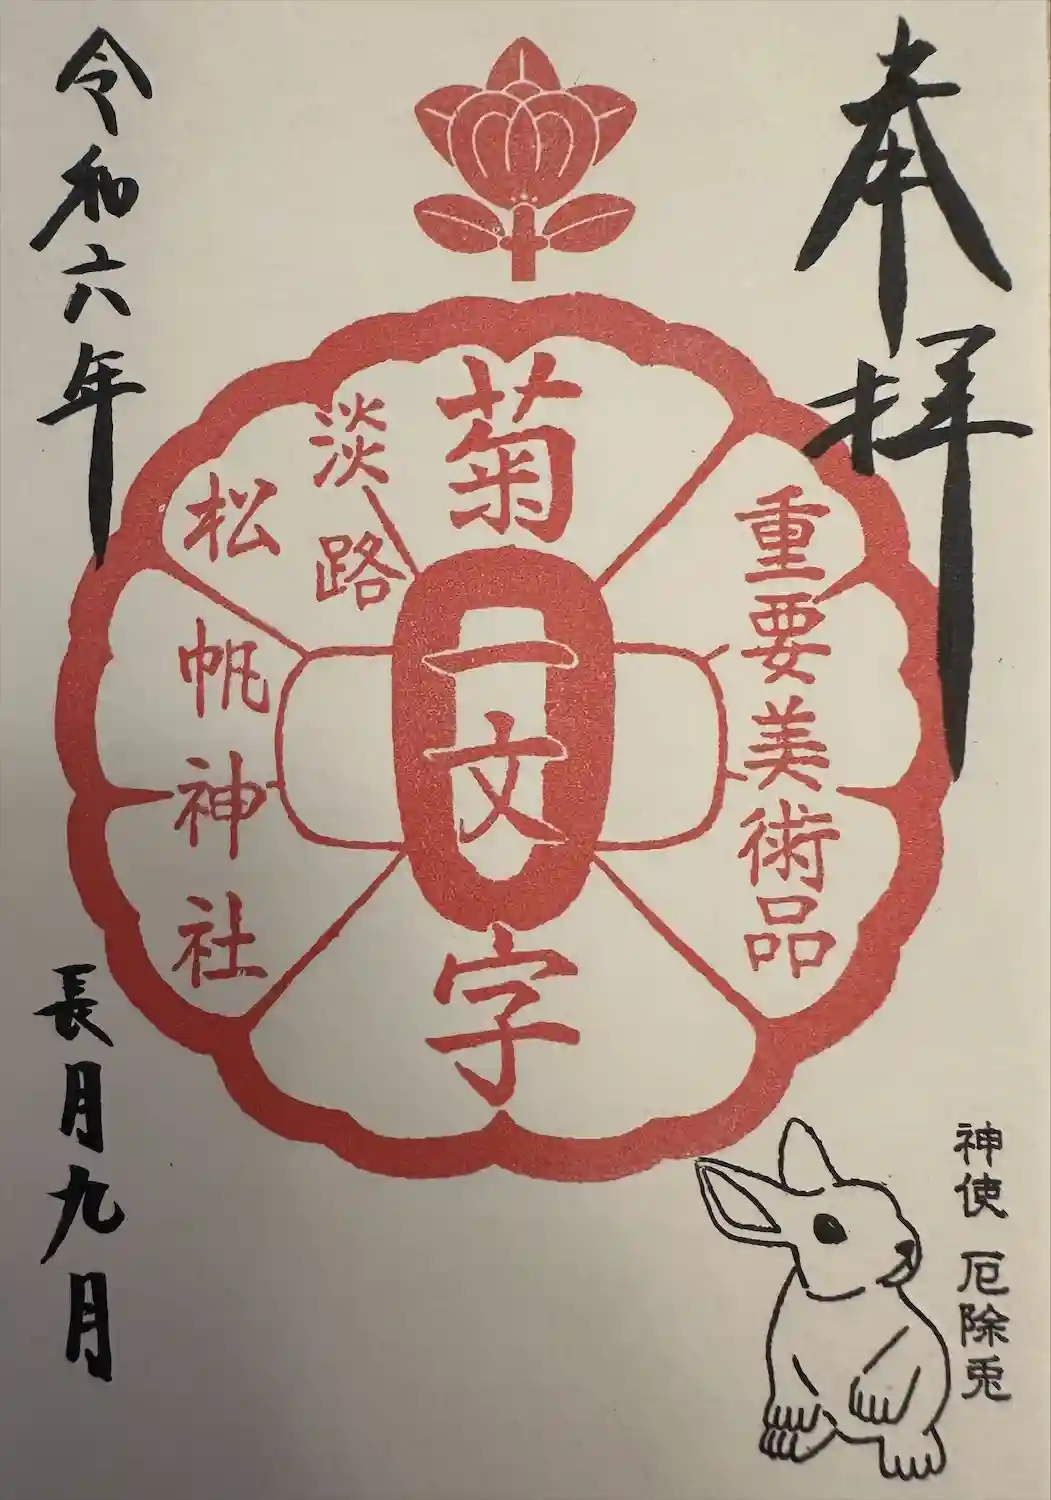 奉拝
神使 厄除兎
重要美術品
菊一文字
淡路
松帆神社
令和六年
長月九月